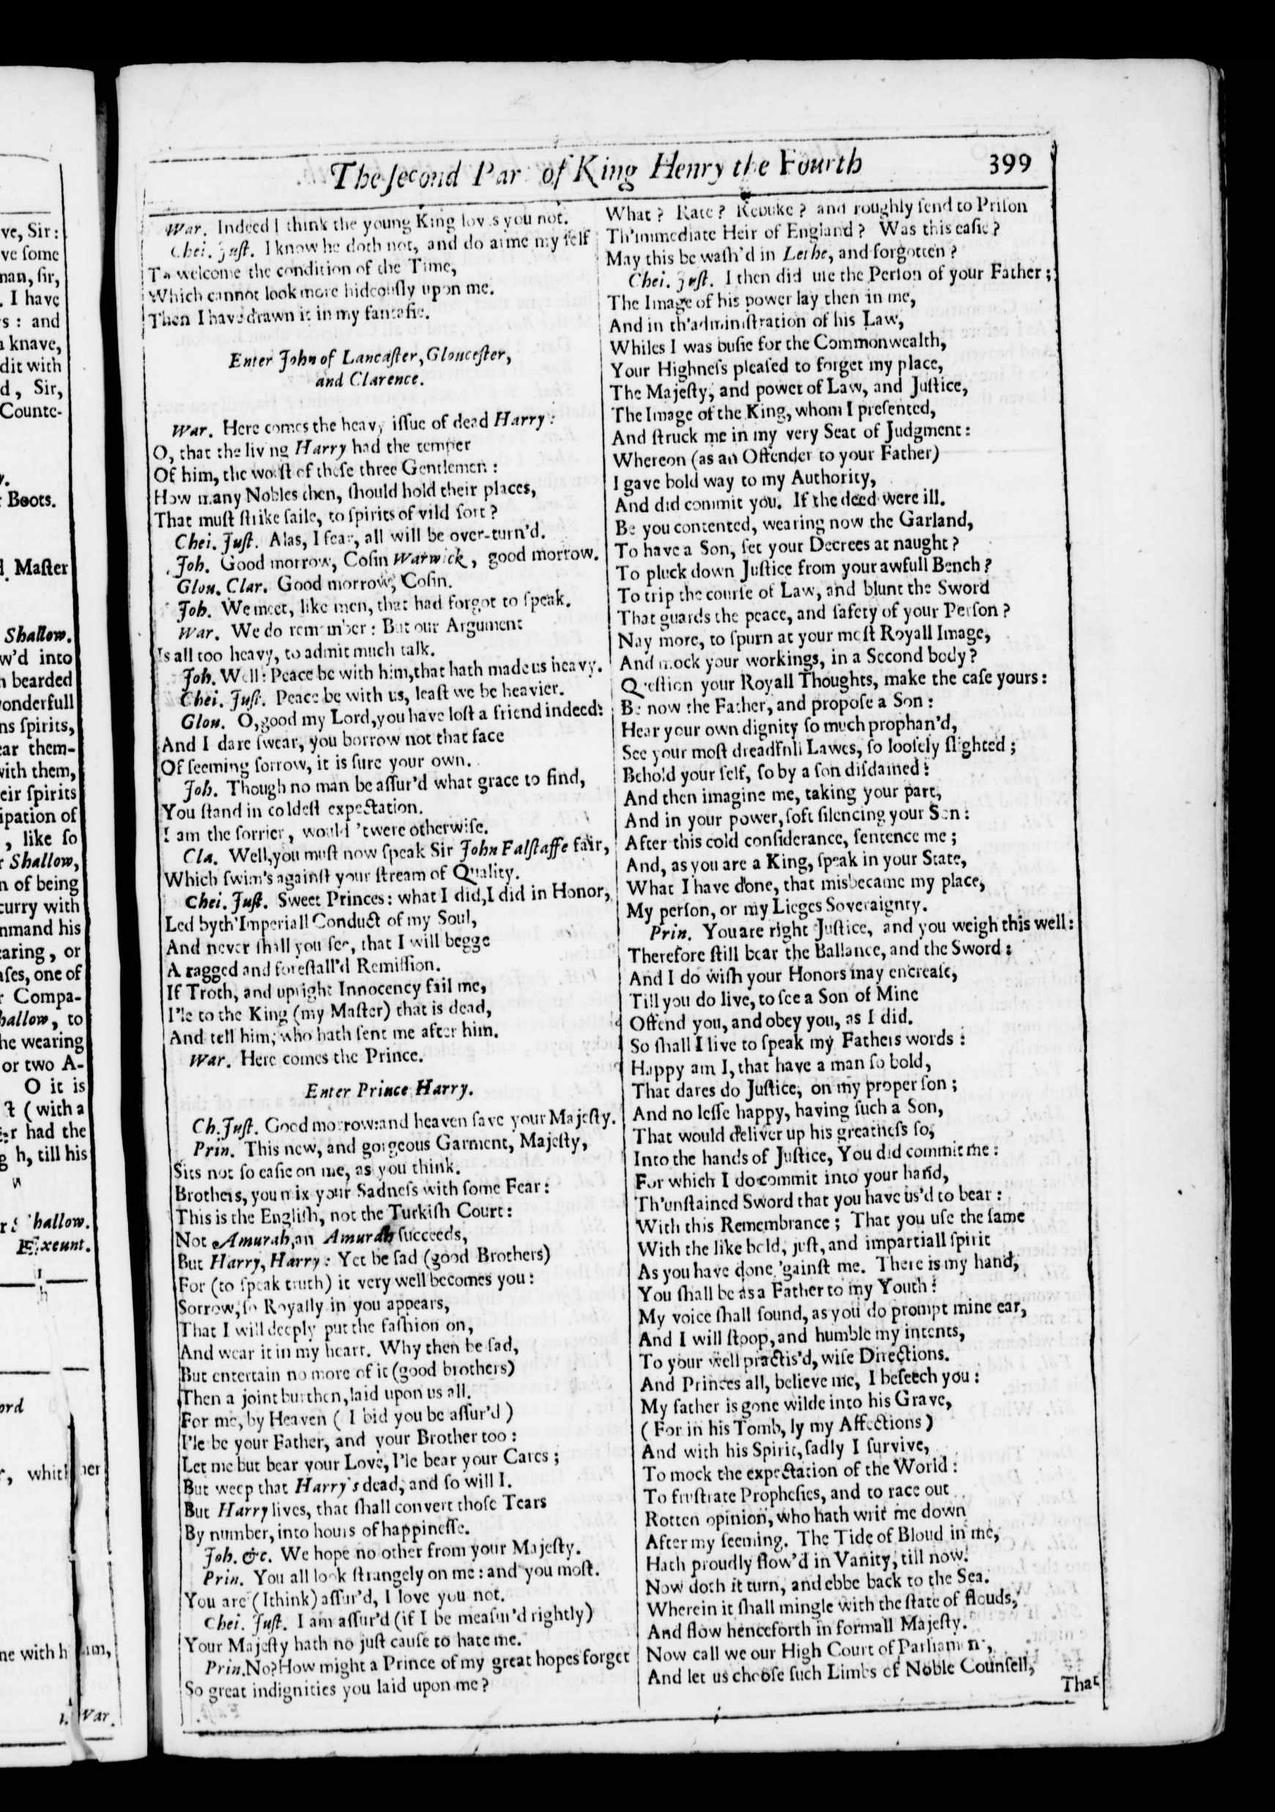 ve, Sir:
ve ſome
man, ſir,
. I have
s: and
knave,
dit with
d, Sir,
Counte-
Boots.
Maſter
Shallow.
w'd into
bearded
onderfull
ns ſpirits,
ear them-
with them,
eir ſpirits
ipation of
, like ſo
Shallow,
n of being
curry with
mmand his
earing, or
aſes, one of
Compa-
hallow, to
he wearing
or two A-
O it is
ſt (with a
er had the
h, till his
hallow.
Exeunt.
ord
, whither
ne with him,
War.
The ſecond Par of King Henry the Fourth 399
War. Indeed I think the young King lov s you not.
Chei. Juſt. I know he doth not, and do arme my ſelf
To welcome the condition of the Time,
Which cannot look more hideouſly upon me.
Then I have drawn it in my fantaſie.
Enter John of Lancaſter, Glouceſter,
and Clarence.
War. Here comes the heavy iſſue of dead Harry:
O, that the living Harry had the temper
Of him, the worſt of theſe three Gentlemen:
How many Nobles then, ſhould hold their places,
That muſt ſtrike ſaile, to ſpirits of vild ſort?
Chei. Juſt. Alas, I fear, all will be over-turn'd.
Joh. Good morrow, Coſin Warwick, good morrow.
Glou. Clar. Good morrow, Coſin.
Joh. We meet, like men, that had forgot to ſpeak.
War. We do remember: But our Argument
Is all too heavy, to admit much talk.
Joh. Well: Peace be with him, that hath made us heavy.
Chei. Juſt. Peace be with us, leaſt we be heavier.
Glou. O, good my Lord, you have loſt a friend indeed:
And I dare ſwear, you borrow not that face
Of ſeeming ſorrow, it is ſure your own.
Joh. Though no man be aſſur'd what grace to find,
You ſtand in coldeſt expectation.
I am the ſorrier, would 'twere otherwiſe.
Cla. Well, you muſt now ſpeak Sir John Falſtaffe fair,
Which ſwim's againſt your ſtream of Quality.
Chei. Juſt. Sweet Princes: what I did, I did in Honor,
Led byth'Imperiall Conduct of my Soul,
And never ſhall you ſee, that I will begge
A ragged and foreſtall'd Remiſſion.
If Troth, and upright Innocency fail me,
I'le to the King (my Maſter) that is dead,
And tell him, who hath ſent me after him.
War. Here comes the Prince.
Enter Prince Harry.
Ch. Juſt. Good morrow: and heaven ſave your Majeſty.
Prin. This new, and gorgeous Garment, Majeſty,
Sits not ſo eaſie on me, as you think.
Brothers, you mix your Sadneſs with ſome Fear:
This is the Engliſh, not the Turkiſh Court:
Not Amurah, an Amurah ſucceeds,
But Harry, Harry: Yet be ſad (good Brothers)
For (to ſpeak truth) it very well becomes you:
Sorrow, ſo Royally in you appears,
That I will deeply put the faſhion on,
And wear it in my heart. Why then be ſad,
But entertain no more of it (good brothers)
Then a joint burthen, laid upon us all.
For me, by Heaven (I bid you be aſſur'd)
I'le be your Father, and your Brother too:
Let me but bear your Love, I'le bear your Cares;
But weep that Harry's dead, and ſo will I.
But Harry lives, that ſhall convert thoſe Tears
By number, into hours of happineſſe.
Joh. &c. We hope no other from your Majeſty.
Prin. You all look ſtrangely on me: and you moſt.
You are (I think) aſſur'd, I love you not.
Chei. Juſt. I am aſſur'd (if I be meaſur'd rightly)
Your Majeſty hath no juſt cauſe to hate me.
Prin. No? How might a Prince of my great hopes forget
So great indignities you laid upon me?
What? Rate? Rebuke? and roughly ſend to Priſon
Th'immediate Heir of England? Was this eaſie?
May this be waſh'd in Lethe, and forgotten?
Chei. Juſt. I then did uſe the Perſon of your Father;
The Image of his power lay then in me,
And in th'adminiſtration of his Law,
Whiles I was buſie for the Commonwealth,
Your Highneſs pleaſed to forget my place,
The Majeſty, and power of Law, and Juſtice,
The Image of the King, whom I preſented,
And ſtruck me in my very Seat of Judgment:
Whereon (as an Offender to your Father)
I gave bold way to my Authority,
And did commit you. If the deed were ill.
Be you contented, wearing now the Garland,
To have a Son, ſet your Decrees at naught?
To pluck down Juſtice from your awfull Bench?
To trip the courſe of Law, and blunt the Sword
That guards the peace, and ſafety of your Perſon?
Nay more, to ſpurn at your moſt Royall Image,
And mock your workings, in a Second body?
Queſtion your Royall Thoughts, make the caſe yours:
Be now the Father, and propoſe a Son:
Hear your own dignity ſo much prophan'd,
See your moſt dreadfull Lawes, ſo looſely ſlighted;
Behold your ſelf, ſo by a ſon diſdained:
And then imagine me, taking your part,
And in your power, ſoft ſilencing your Son:
After this cold conſiderance, ſentence me;
And, as you are a King, ſpeak in your State,
What I have done, that misbecame my place,
My perſon, or my Lieges Soveraignty.
Prin. You are right Juſtice, and you weigh this well:
Therefore ſtill bear the Ballance, and the Sword:
And I do wiſh your Honors may encreaſe,
Till you do live, to ſee a Son of Mine
Offend you, and obey you, as I did.
So ſhall I live to ſpeak my Fathers words:
Happy am I, that have a man ſo bold,
That dares do Juſtice, on my proper ſon;
And no leſſe happy, having ſuch a Son,
That would deliver up his greatneſs ſo,
Into the hands of Juſtice, You did commit me:
For which I do commit into your hand,
Th'unſtained Sword that you have us'd to bear:
With this Remembrance; That you uſe the ſame
With the like bold, juſt, and impartiall ſpirit
As you have done 'gainſt me. There is my hand,
You ſhall be as a Father to my Youth:
My voice ſhall ſound, as you do prompt mine ear,
And I will ſtoop, and humble my intents,
To your well practis'd, wiſe Directions.
And Princes all, believe me, I beſeech you:
My father is gone wilde into his Grave,
(For in his Tomb, ly my Affections)
And with his Spirit, ſadly I ſurvive,
To mock the expectation of the World:
To fruſtrate Propheſies, and to race out
Rotten opinion, who hath writ me down
After my ſeeming. The Tide of Bloud in me,
Hath proudly flow'd in Vanity, till now.
Now doth it turn, and ebbe back to the Sea.
Wherein it ſhall mingle with the ſtate of flouds,
And flow henceforth in formall Majeſty.
Now call we our High Court of Parliament,
And let us chooſe ſuch Limbs of Noble Counſell,
That